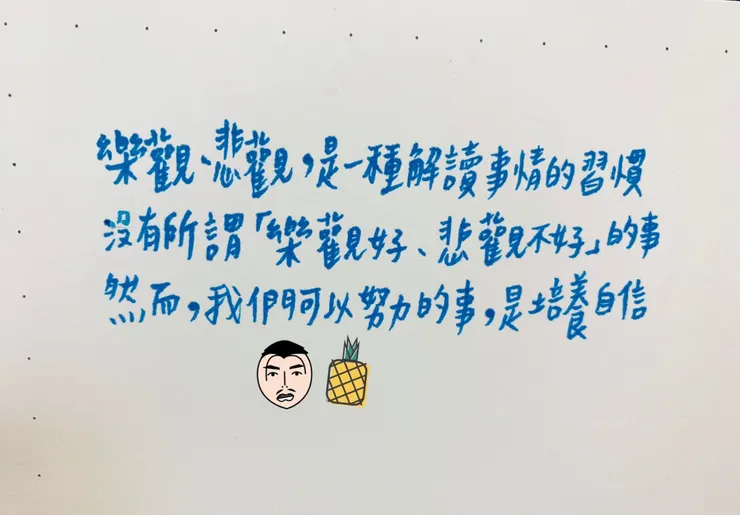 樂觀、悲觀，是一種解讀事情的習慣
沒有所謂「樂觀好、悲觀不好」的事
然而，我們可以努力的事，是培養自信